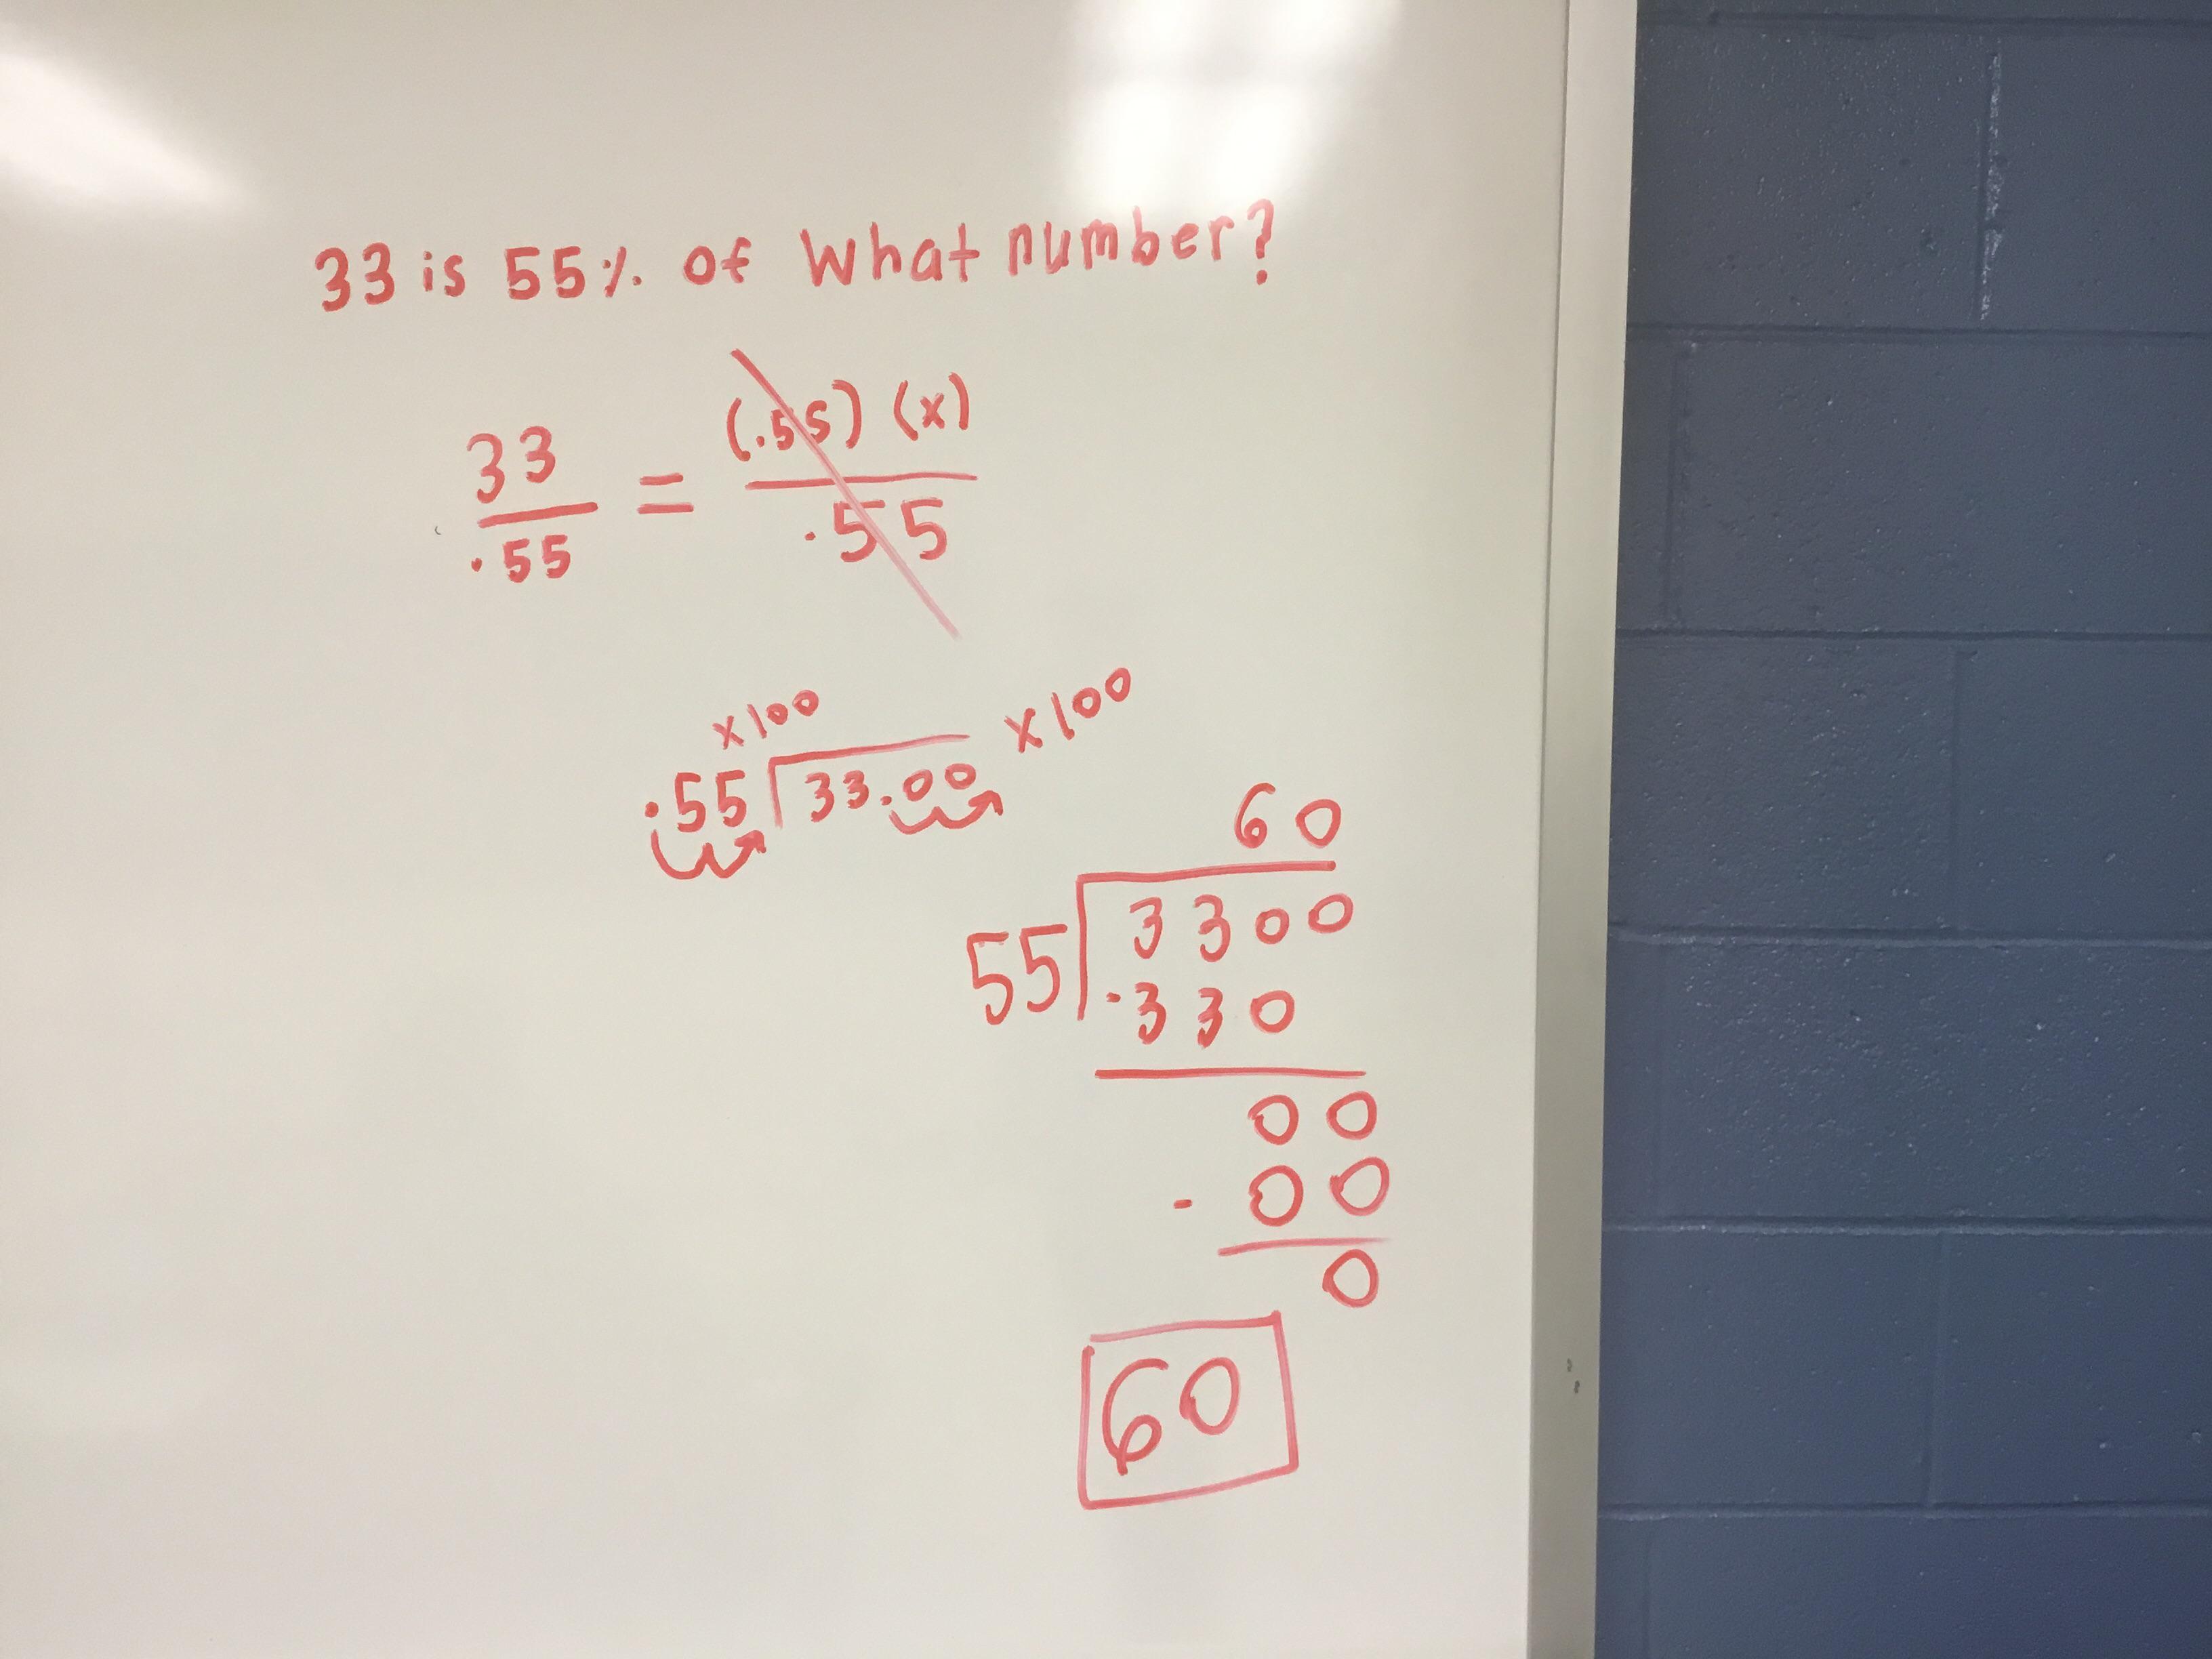 33 is 55% of What number?
33 = (.55) (x)
.55 .55
x100 x100
.55 33.00
60
55 3300
-330
00
- 00
0
60